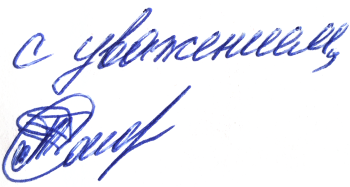 с уважением,